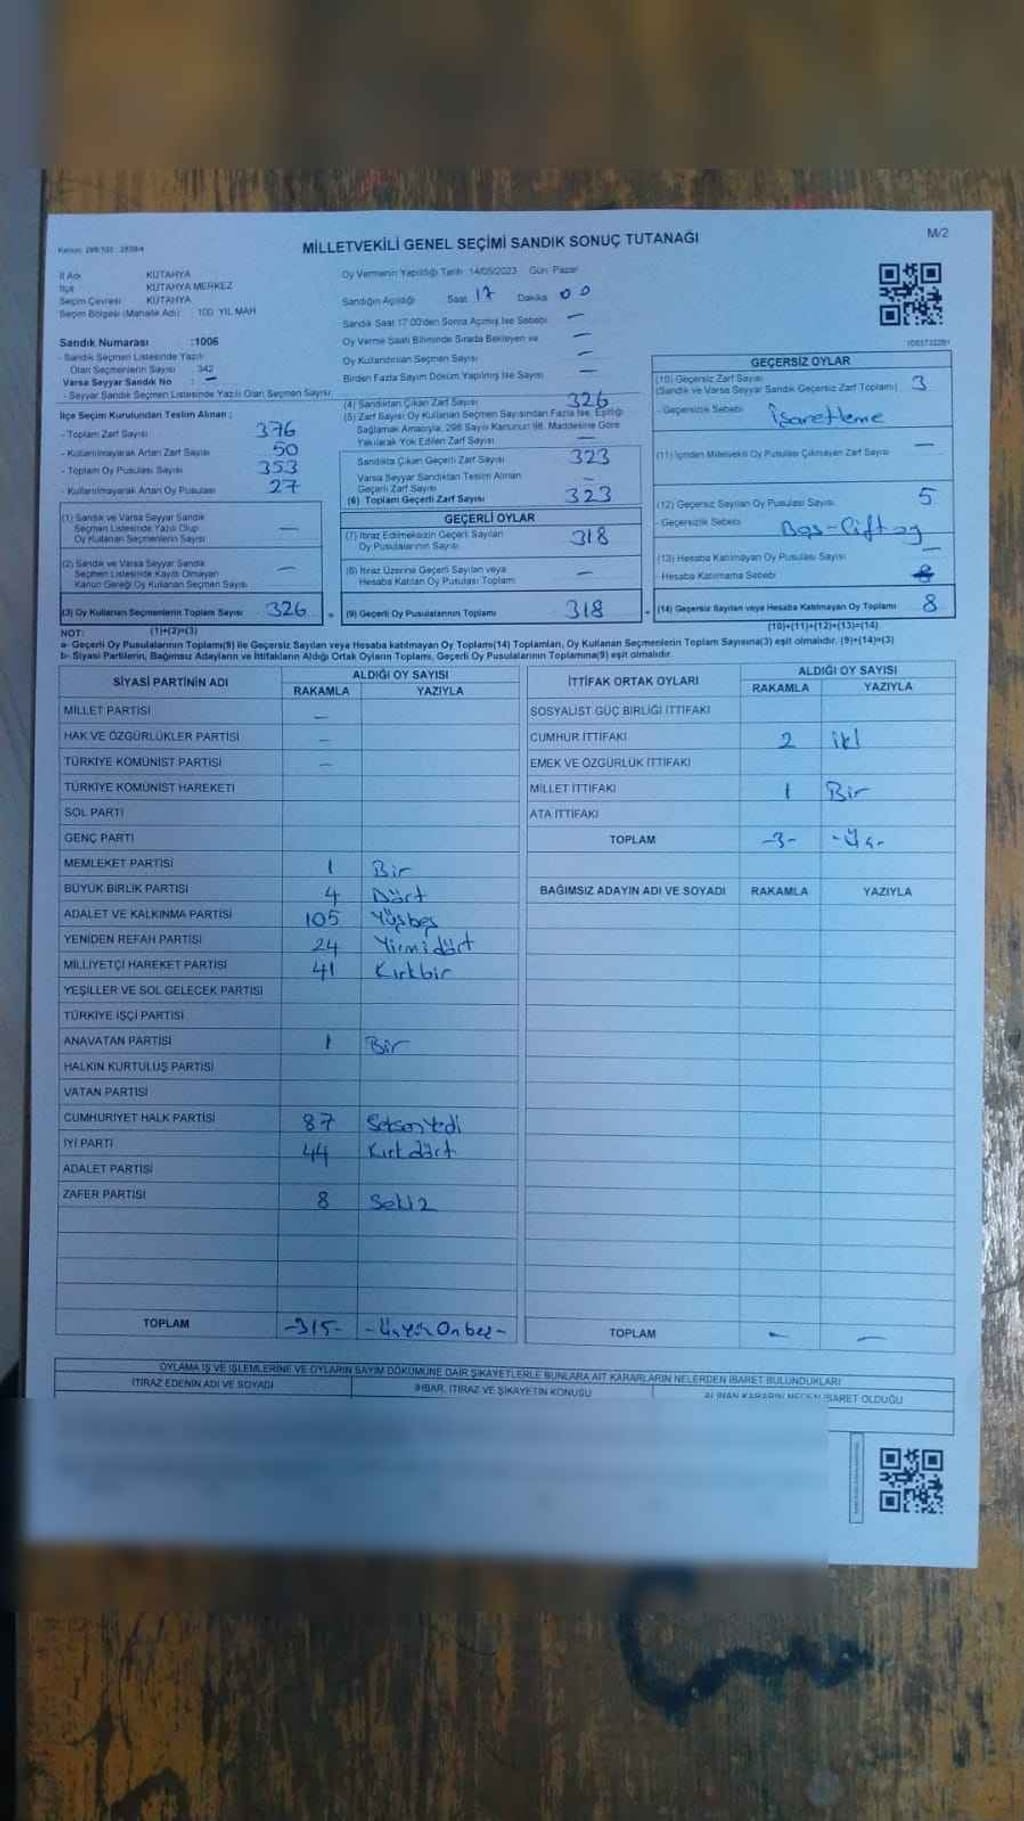 M/2
MİLLETVEKİLİ GENEL SEÇİMİ SANDIK SONUÇ TUTANAĞI
İl Adı KÜTAHYA
İlçe KÜTAHYA MERKEZ
Seçim Çevresi KÜTAHYA
Seçim Bölgesi (Mahalle Adı) : 100. YIL MAH
Sandık Numarası :1006
- Sandık Seçmen Listesinde Yazılı
Olan Seçmenlerin Sayısı 342
Varsa Seyyar Sandık No : -
- Seyyar Sandık Seçmen Listesinde Yazılı Olan Seçmen Sayısı
İlçe Seçim Kurulundan Teslim Alınan :
- Toplam Zarf Sayısı 376
- Kullanılmayarak Artan Zarf Sayısı 50
- Toplam Oy Pusulası Sayısı 353
- Kullanılmayarak Artan Oy Pusulası 27
(1) Sandık ve Varsa Seyyar Sandık
Seçmen Listesinde Yazılı Olup
Oy Kullanan Seçmenlerin Sayısı —
(2) Sandık ve Varsa Seyyar Sandık
Seçmen Listesinde Kayıtlı Olmayan
Kanun Gereği Oy Kullanan Seçmen Sayısı —
(3) Oy Kullanan Seçmenlerin Toplam Sayısı 326
(1)+(2)=(3)
Oy Vermenin Yapıldığı Tarih 14/05/2023 Gün: Pazar
Sandığın Açıldığı Saat 17 Dakika 00
Sandık Saat 17.00'den Sonra Açılmış İse Sebebi —
Oy Verme Saati Bitiminde Sırada Bekleyen ve —
Oy Kullandırılan Seçmen Sayısı —
Birden Fazla Sayım Döküm Yapılmış İse Sayısı —
(4) Sandıktan Çıkan Zarf Sayısı 326
(5) Zarf Sayısı Oy Kullanan Seçmen Sayısından Fazla İse, Eşitliği
Sağlamak Amacıyla, 298 Sayılı Kanunun 98. Maddesine Göre
Yakılarak Yok Edilen Zarf Sayısı —
Sandıkta Çıkan Geçerli Zarf Sayısı 323
Varsa Seyyar Sandıktan Teslim Alınan
Geçerli Zarf Sayısı —
(6) Toplam Geçerli Zarf Sayısı 323
GEÇERLİ OYLAR
(7) İtiraz Edilmeksizin Geçerli Sayılan
Oy Pusulalarının Sayısı 318
(8) İtiraz Üzerine Geçerli Sayılan veya
Hesaba Katılan Oy Pusulası Toplamı —
(9) Geçerli Oy Pusulalarının Toplamı 318
GEÇERSİZ OYLAR
(10) Geçersiz Zarf Sayısı
(Sandık ve Varsa Seyyar Sandık Geçersiz Zarf Toplamı) 3
- Geçersizlik Sebebi İşaretleme
(11) İçinden Milletvekili Oy Pusulası Çıkmayan Zarf Sayısı —
(12) Geçersiz Sayılan Oy Pusulası Sayısı 5
- Geçersizlik Sebebi Boş-Çift oy
(13) Hesaba Katılmayan Oy Pusulası Sayısı —
- Hesaba Katılmama Sebebi
(14) Geçersiz Sayılan veya Hesaba Katılmayan Oy Toplamı 8
(10)+(11)+(12)+(13)=(14)
NOT:
a- Geçerli Oy Pusulalarının Toplamı(9) ile Geçersiz Sayılan veya Hesaba katılmayan Oy Toplamı(14) Toplamları, Oy Kullanan Seçmenlerin Toplam Sayısına(3) eşit olmalıdır. (9)+(14)=(3)
b- Siyasi Partilerin, Bağımsız Adayların ve İttifakların Aldığı Ortak Oyların Toplamı, Geçerli Oy Pusulalarının Toplamına(9) eşit olmalıdır.
SİYASİ PARTİNİN ADI ALDIĞI OY SAYISI
RAKAMLA YAZIYLA
MİLLET PARTİSİ —
HAK VE ÖZGÜRLÜKLER PARTİSİ —
TÜRKİYE KOMÜNİST PARTİSİ —
TÜRKİYE KOMÜNİST HAREKETİ
SOL PARTİ
GENÇ PARTİ
MEMLEKET PARTİSİ 1 Bir
BÜYÜK BİRLİK PARTİSİ 4 Dört
ADALET VE KALKINMA PARTİSİ 105 Yüzbeş
YENİDEN REFAH PARTİSİ 24 Yirmidört
MİLLİYETÇİ HAREKET PARTİSİ 41 Kırkbir
YEŞİLLER VE SOL GELECEK PARTİSİ
TÜRKİYE İŞÇİ PARTİSİ
ANAVATAN PARTİSİ 1 Bir
HALKIN KURTULUŞ PARTİSİ
VATAN PARTİSİ
CUMHURİYET HALK PARTİSİ 87 Seksenyedi
İYİ PARTİ 44 Kırkdört
ADALET PARTİSİ
ZAFER PARTİSİ 8 Sekiz
TOPLAM -315- -Üçyüz Onbeş-
İTTİFAK ORTAK OYLARI ALDIĞI OY SAYISI
RAKAMLA YAZIYLA
SOSYALİST GÜÇ BİRLİĞİ İTTİFAKI
CUMHUR İTTİFAKI 2 iki
EMEK VE ÖZGÜRLÜK İTTİFAKI
MİLLET İTTİFAKI 1 Bir
ATA İTTİFAKI
TOPLAM -3- -Üç-
BAĞIMSIZ ADAYIN ADI VE SOYADI RAKAMLA YAZIYLA
TOPLAM — —
OYLAMA İŞ VE İŞLEMLERİNE VE OYLARIN SAYIM DÖKÜMÜNE DAİR ŞİKAYETLERLE BUNLARA AİT KARARLARIN NELERDEN İBARET BULUNDUKLARI
İTİRAZ EDENİN ADI VE SOYADI İHBAR, İTİRAZ VE ŞİKAYETİN KONUSU ALINAN KARARIN NEDEN İBARET OLDUĞU